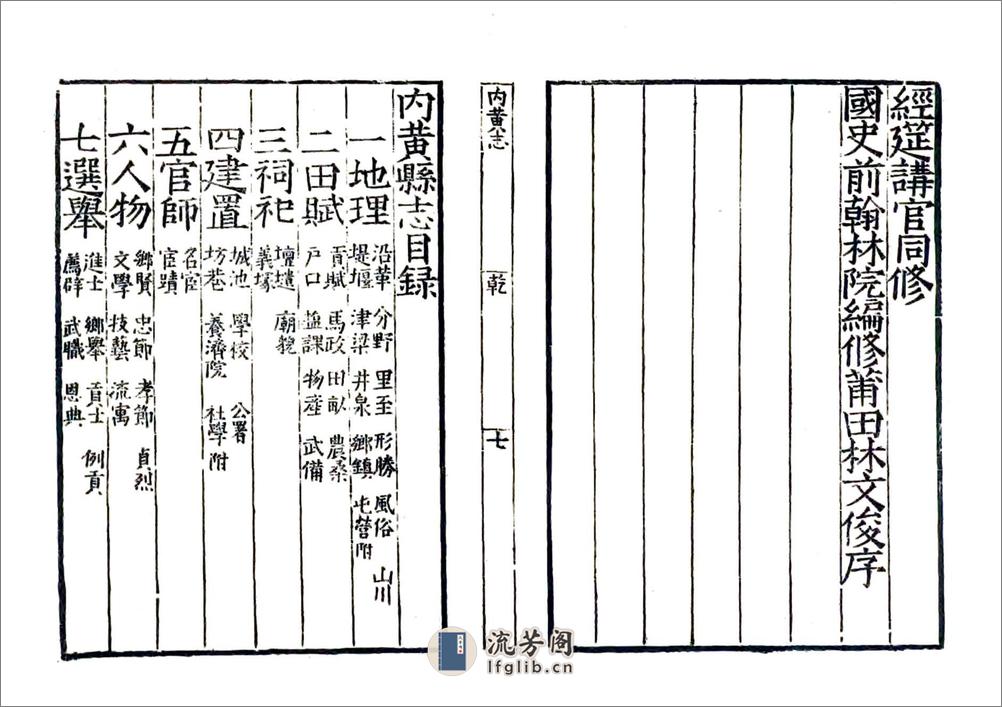 經筵講官同修
國史前翰林院編修莆田林文俊序
內黃志
乾
七
內黃縣志目録
一地理 沿革 分野 里至 形勝 風俗 山川
堤堰 津梁 井泉 鄉鎮 屯營附
二田賦 貢賦 馬政 田畝 農桑
戸口 鹽課 物產 武備
三祠祀 壇壝 廟貌
義塚
四建置 城池 學校 公署
坊巷 養濟院 社學附
五官師 名宦
宦蹟
六人物 鄉賢 忠節 孝節 貞烈
文學 技藝 流寓
七選舉 進士 鄉舉 貢士 例貢
薦辟 武職 恩典
流芳阁
lfglib.cn